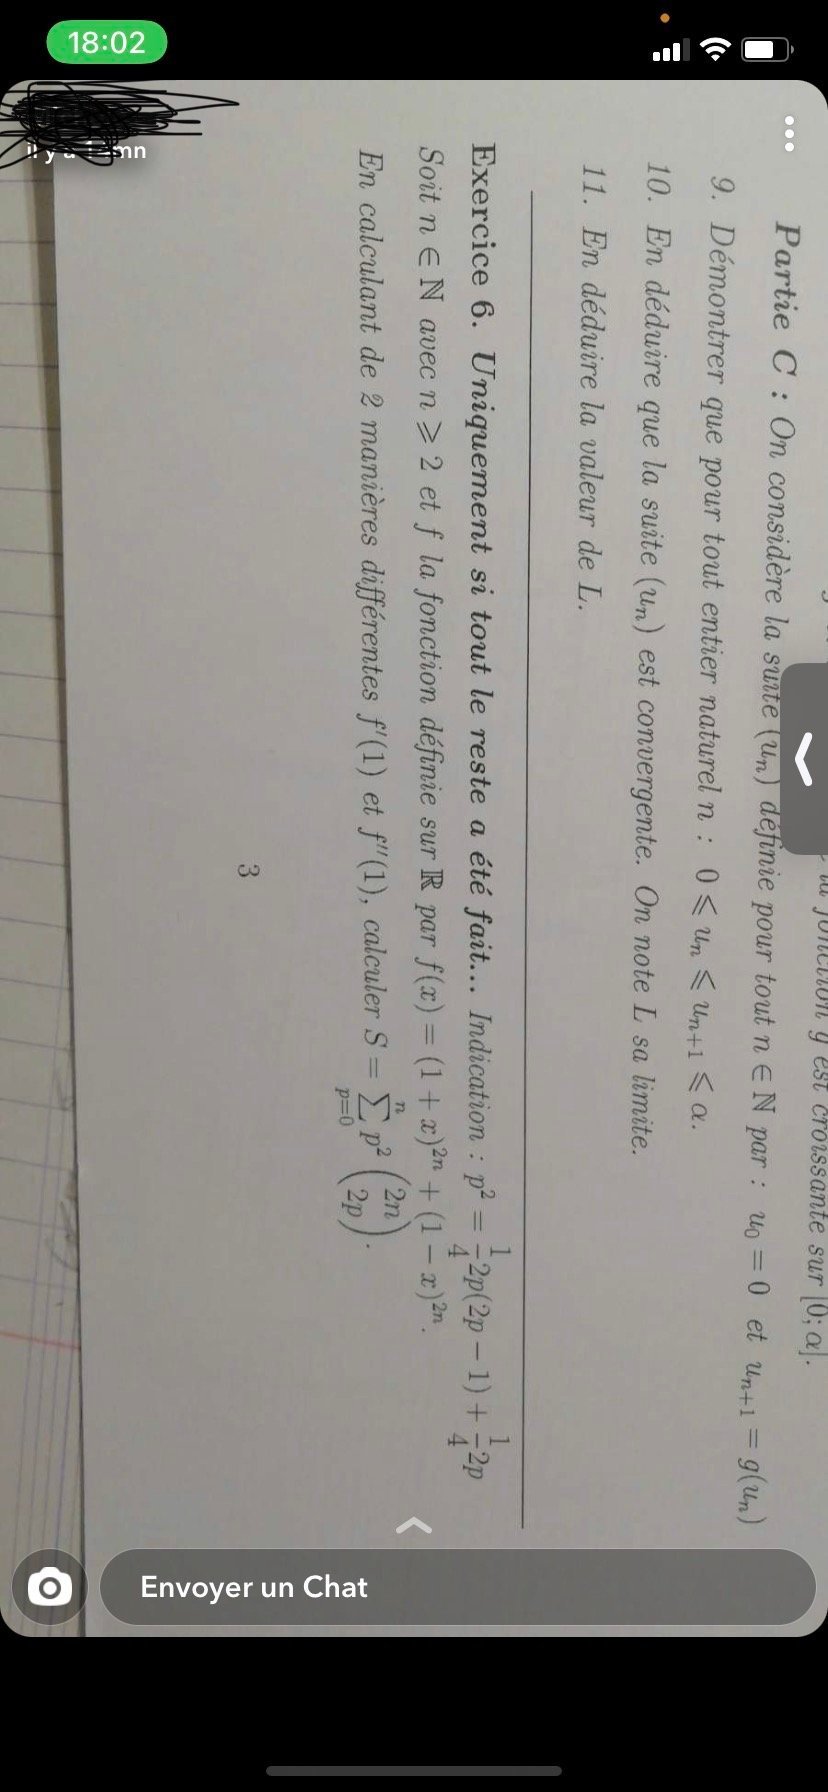 18:02
mn
g est croissante sur [0; α].
Partie C : On considère la suite (uₙ) définie pour tout n ∈ ℕ par : u₀ = 0 et uₙ₊₁ = g(uₙ)
9. Démontrer que pour tout entier naturel n : 0 ⩽ uₙ ⩽ uₙ₊₁ ⩽ α.
10. En déduire que la suite (uₙ) est convergente. On note L sa limite.
11. En déduire la valeur de L.
Exercice 6. Uniquement si tout le reste a été fait... Indication : p² = 1/4 2p(2p − 1) + 1/4 2p
Soit n ∈ ℕ avec n ⩾ 2 et f la fonction définie sur ℝ par f(x) = (1 + x)²ⁿ + (1 − x)²ⁿ.
En calculant de 2 manières différentes f′(1) et f″(1), calculer S = ∑ₚ₌₀ⁿ p² (2n 2p).
3
Envoyer un Chat